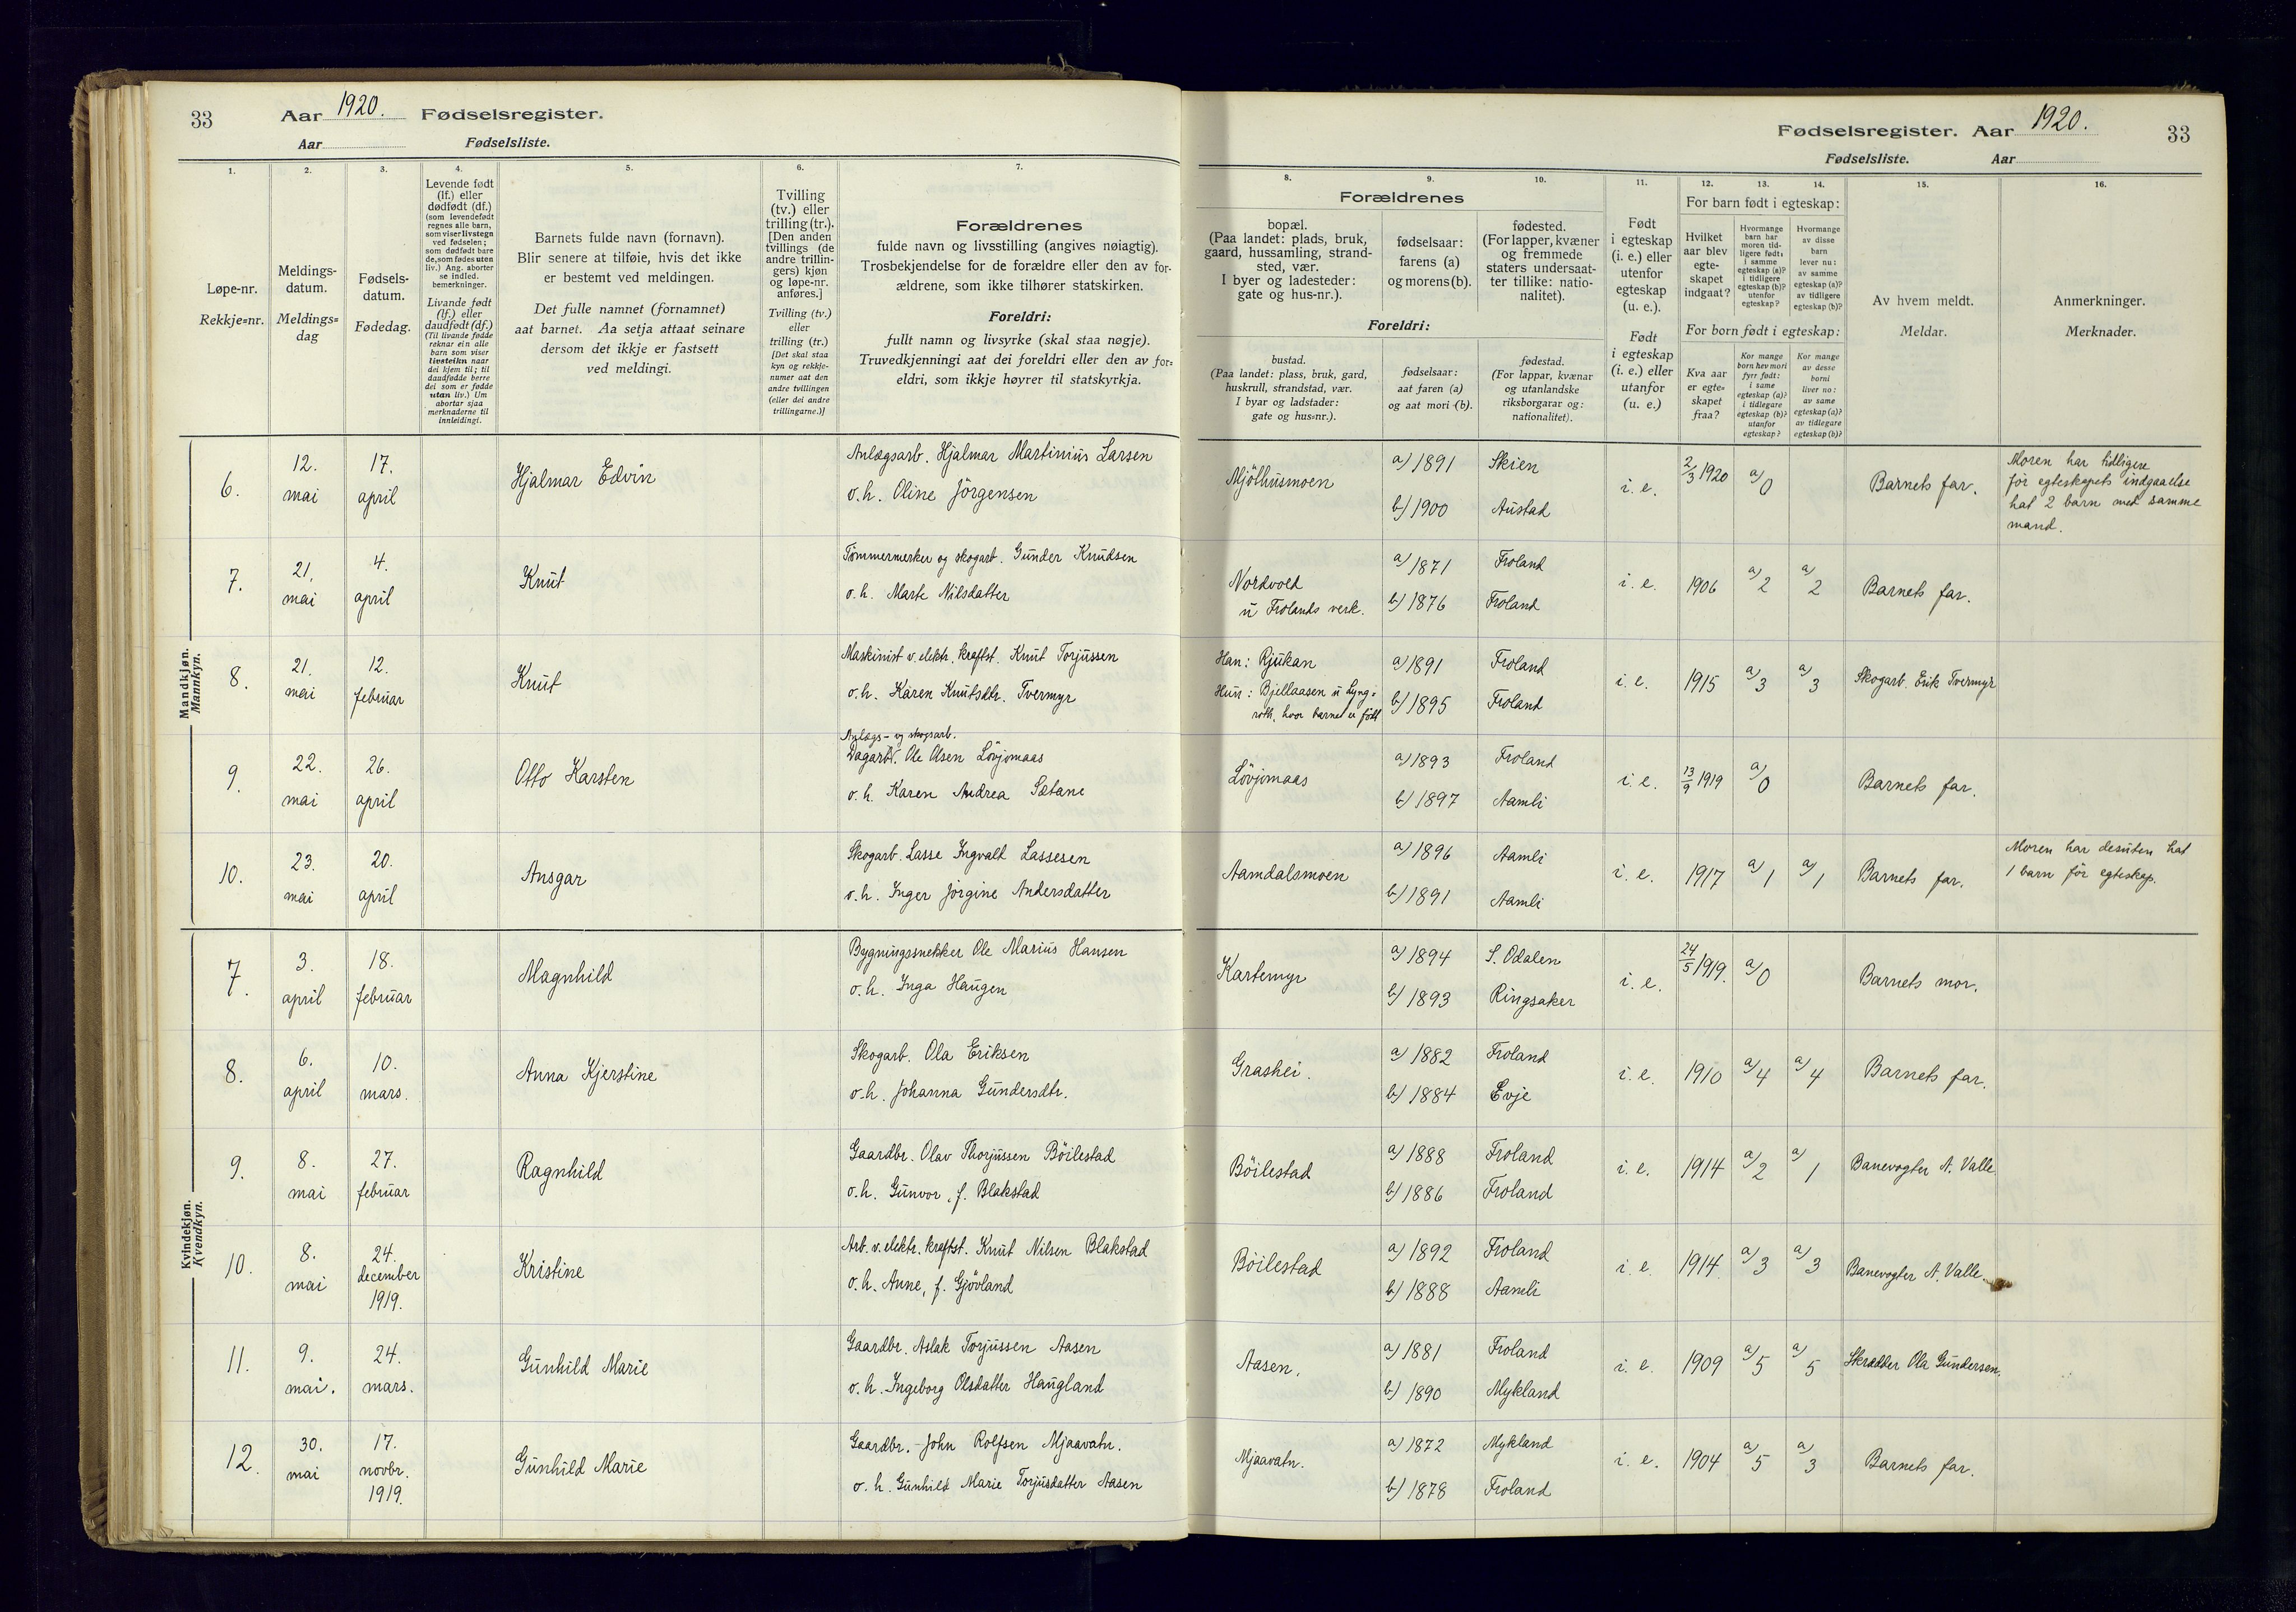 33 Aar 1920. Fødselsregister.
Aar Fødselsliste.
1. 2. 3. 4. 5. 6. 7.
Løpe-nr.
Rekkje=nr.
Meldings-
datum.
Meldings=
dag
Fødsels-
datum.
Fødedag.
Levende født
(lf.) eller
dødfødt (df.)
(som levendefødt
regnes alle barn,
som viser livstegn
ved fødselen;
som dødfødt bare
de, som fødes uten
liv.) Ang. aborter
se indled.
bemerkninger.
Livande født
(lf.) eller
daudfødt (df.)
(Til livande fødde
reknar ein alle
barn som viser
livsteikn naar
dei kjem til; til
daudfødde berre
dei som er fødde
utan liv.) Um
abortar sjaa
merknaderne til
innleidingi.
Barnets fulde navn (fornavn).
Blir senere at tilføie, hvis det ikke
er bestemt ved meldingen.
Det fulle namnet (fornamnet)
aat barnet. Aa setja attaat seinare
dersom det ikkje er fastsett
ved meldingi.
Tvilling
(tv.) eller
trilling (tr.).
[Den anden
tvillings (de
andre trillin-
gers) kjøn
og løpe-nr.
anføres.]
Tvilling (tv.)
eller
trilling (tr.)
[Det skal staa
kyn og rekkje-
numer aat den
andre tvillingen
(eller dei andre
trillingarne.)]
Forældrenes
fulde navn og livsstilling (angives nøiagtig).
Trosbekjendelse for de forældre eller den av for-
ældrene, som ikke tilhører statskirken.
Foreldri:
fullt namn og livsyrke (skal staa nøgje).
Truvedkjenningi aat dei foreldri eller den av for=
eldri, som ikkje høyrer til statskyrkja.
Mandkjøn.
Mannkyn.
6. 12. mai 17. april Hjalmar Edvin
Anlægsarb. Hjalmar Martinius Larsen
o.h. Oline Jörgensen
7. 21. mai 4. april Knut
Tömmermerker og skogarb. Gunder Knudsen
o.h. Marte Nilsdatter
8. 21. mai 12. februar Knut
Maskinist v. elektr. kraftst. Knut Torjussen
o.h. Karen Knutsdtr. Tvermyr
9. 22. mai 26. april Otto Karsten
Anlægs- og skogsarb.
Dagarb. Ole Olsen Lövjomaas
o.h. Karen Andrea Sætane
10. 23. mai 20. april Ansgar
Skogarb. Lasse Ingvald Lassesen
o.h. Inger Jörgine Andersdatter
Kvindekjøn.
Kvendkyn.
7. 3. april 18. februar Magnhild
Bygningssnekker Ole Marius Hansen
o.h. Inga Haugen
8. 6. april 10. mars. Anna Kjerstine
Skogarb. Ola Eriksen
o.h. Johanna Gundersdtr.
9. 8. mai 27. februar Ragnhild
Gaardbr. Olav Thorjussen Böilestad
o.h. Gunvor, f. Blakstad
10. 8. mai 24. december 1919. Kristine
Arb. v. elektr. kraftst. Knut Nilsen Blakstad
o.h. Anne, f. Gjövland
11. 9. mai. 24. mars. Gunhild Marie
Gaardbr. Aslak Torjussen Aasen
o.h. Ingeborg Olsdatter Haugland
12. 30. mai 17. novbr. 1919. Gunhild Marie
Gaardbr. John Rolfsen Mjaavatn.
o.h. Gunhild Marie Torjusdatter Aasen
Fødselsregister. Aar 1920. 33
Fødselsliste. Aar
8. 9. 10. 11. 12. 13. 14. 15. 16.
Forældrenes
bopæl.
(Paa landet: plads, bruk,
gaard, hussamling, strand-
sted, vær.
I byer og ladesteder:
gate og hus-nr.).
fødselsaar:
farens (a)
og morens (b).
fødested.
(For lapper, kvæner
og fremmede
staters undersaat-
ter tillike: natio-
nalitet).
Foreldri:
bustad.
(Paa landet: plass, bruk, gard,
huskrull, strandstad, vær.
I byar og ladstader:
gate og hus=nr.).
fødselsaar:
aat faren (a)
og aat mori (b).
fødestad.
(For lappar, kvænar
og utanlandske
riksborgarar og:
nationalitet).
Født
i egteskap
(i. e.) eller
utenfor
egteskap
(u. e.).
Født
i egteskap
(i. e.) eller
utanfor
(u. e.)
For barn født i egteskap:
Hvilket
aar blev
egte-
skapet
indgaat?
Hvormange
barn har
moren tid-
ligere født:
i samme
egteskap (a)?
i tidligere
egteskap (b)?
utenfor
egteskap?
Hvormange
av disse
barn
lever nu:
av samme
egteskap (a)?
av tidligere
egteskap (b)?
For born født i egteskap:
Kva aar
er egte=
skapet
fraa?
Kor mange
born hev mori
fyrr født:
i same
egteskap (a)?
i tidlegare
egteskap (b)?
utanfor
egteskap?
Kor mange
av desse
borni
liver no:
av same
egteskap (a)?
av tidlegare
egteskap (b)?
Av hvem meldt.
Meldar.
Anmerkninger.
Merknader.
Mjölhusmoen a) 1891 Skien i. e. 2/3 1920 a) 0 Barnets far.
b) 1900 Austad
Moren har tidligere
før egteskapets indgaaelse
hat 2 barn med samme
mand.
Nordvold a) 1871 Froland i. e. 1906 a) 2 a) 2 Barnets far.
u Frolands verk. b) 1876 Froland
Han: Rjukan a) 1891 Froland i. e. 1915 a) 3 a) 3 Skogarb. Erik Tvermyr
Hun: Bjellaasen u Lyng=
roth, hvor barnet er født b) 1895 Froland
Lövjomaas a) 1893 Froland i. e. 13/9 1919 a) 0 Barnets far.
b) 1897 Aamli
Aamdalsmoen a) 1896 Aamli i. e. 1917 a) 1 a) 1 Barnets far.
b) 1891 Aamli
Moren har desuten hat
1 barn før egteskap.
Kartemyr a) 1894 S. Odalen i. e. 24/5 1919. a) 0 Barnets mor.
b) 1893 Ringsaker
Grashei. a) 1882 Froland i. e. 1910 a) 4 a) 4 Barnets far.
b) 1884 Evje
Böilestad a) 1888 Froland i. e. 1914 a) 2 a) 1 Banevogter A. Valle
b) 1886 Froland
Böilestad a) 1892 Froland i. e. 1914. a) 3 a) 3 Banevogter A. Valle.
b) 1888 Aamli
Aasen. a) 1881 Froland i. e. 1909 a) 5 a) 5 Skrædder Ola Gundersen.
b) 1890 Mykland
Mjaavatn. a) 1872 Mykland i. e. 1904 a) 5 a) 3 Barnets far.
b) 1878 Froland